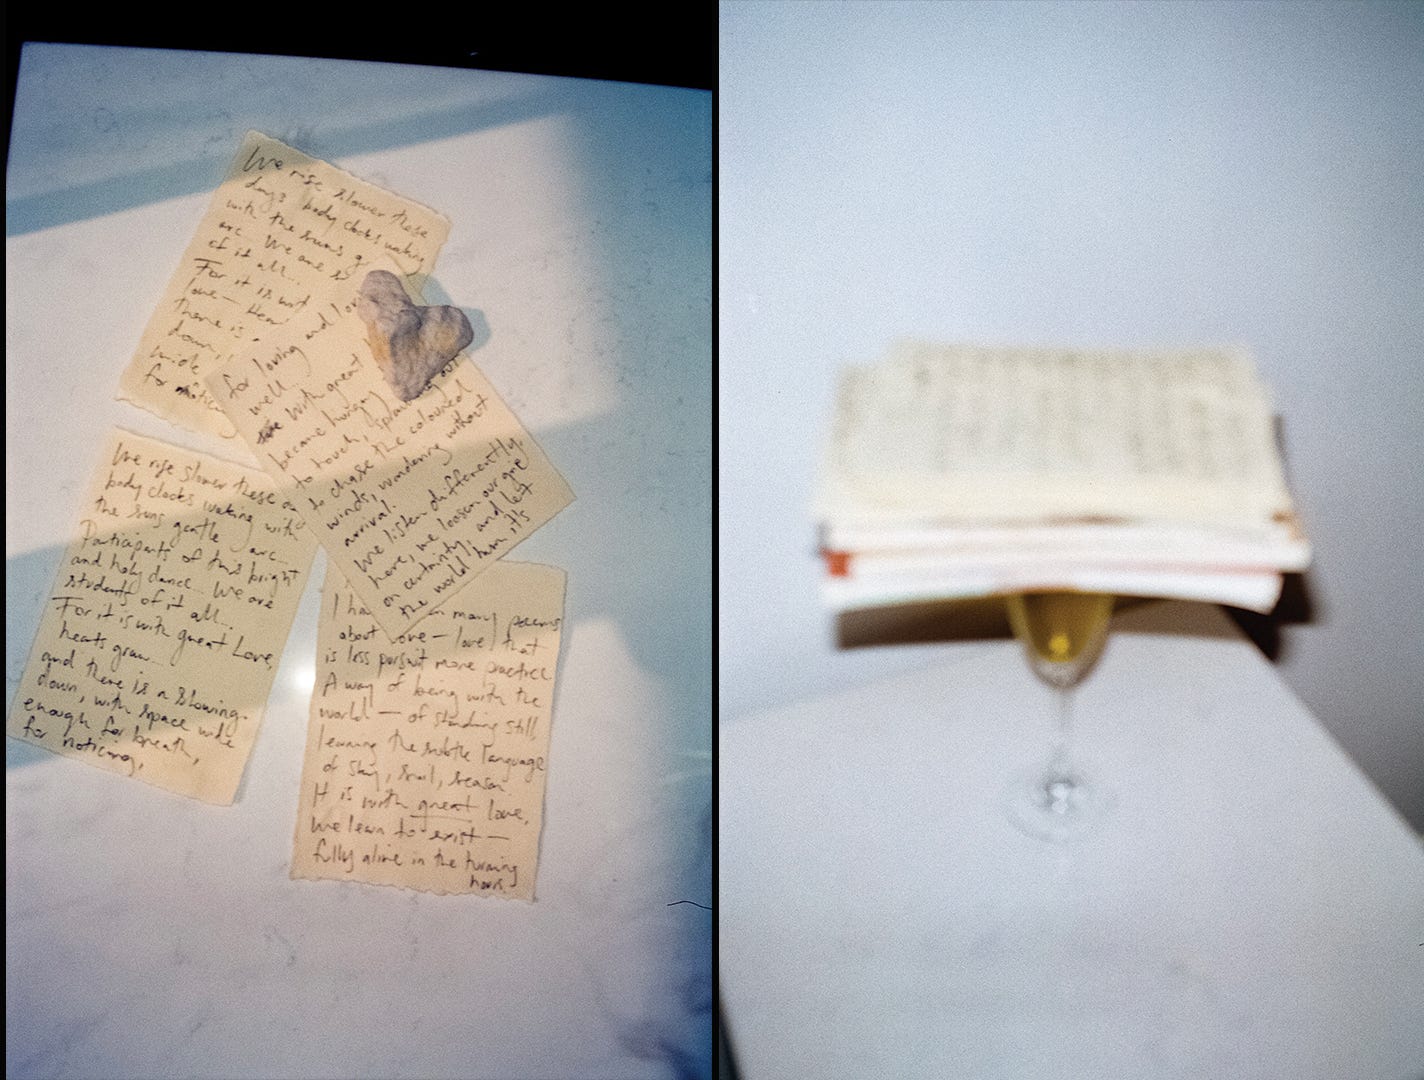 We rise slower these
days body clocks waking
with the suns g
arc. We are s
of it all...
For it is wit
love— Hear
there is
down,
wide
for noticin
for loving and lov
well
We With great
became hungry
to touch, sprawling out
to chase the coloured
winds, wondering without
arrival.
We listen differently.
here, we loosen our grip
on certainty, and let
the world turn it's
We rise slower these da
body clocks waking with
the suns gentle arc...
Participants of this bright
and holy dance... We are
students of it all...
For it is with great Love,
hearts grow...
and there is a slowing.
down, with space wide
enough for breath,
for noticing,
I ha many poems
about love— love that
is less pursuit more practice
A way of being with the
world — of standing still,
learning the subtle language
of sky, soil, season.
It is with great love,
We learn to exist —
fully alive in the turning
hours.